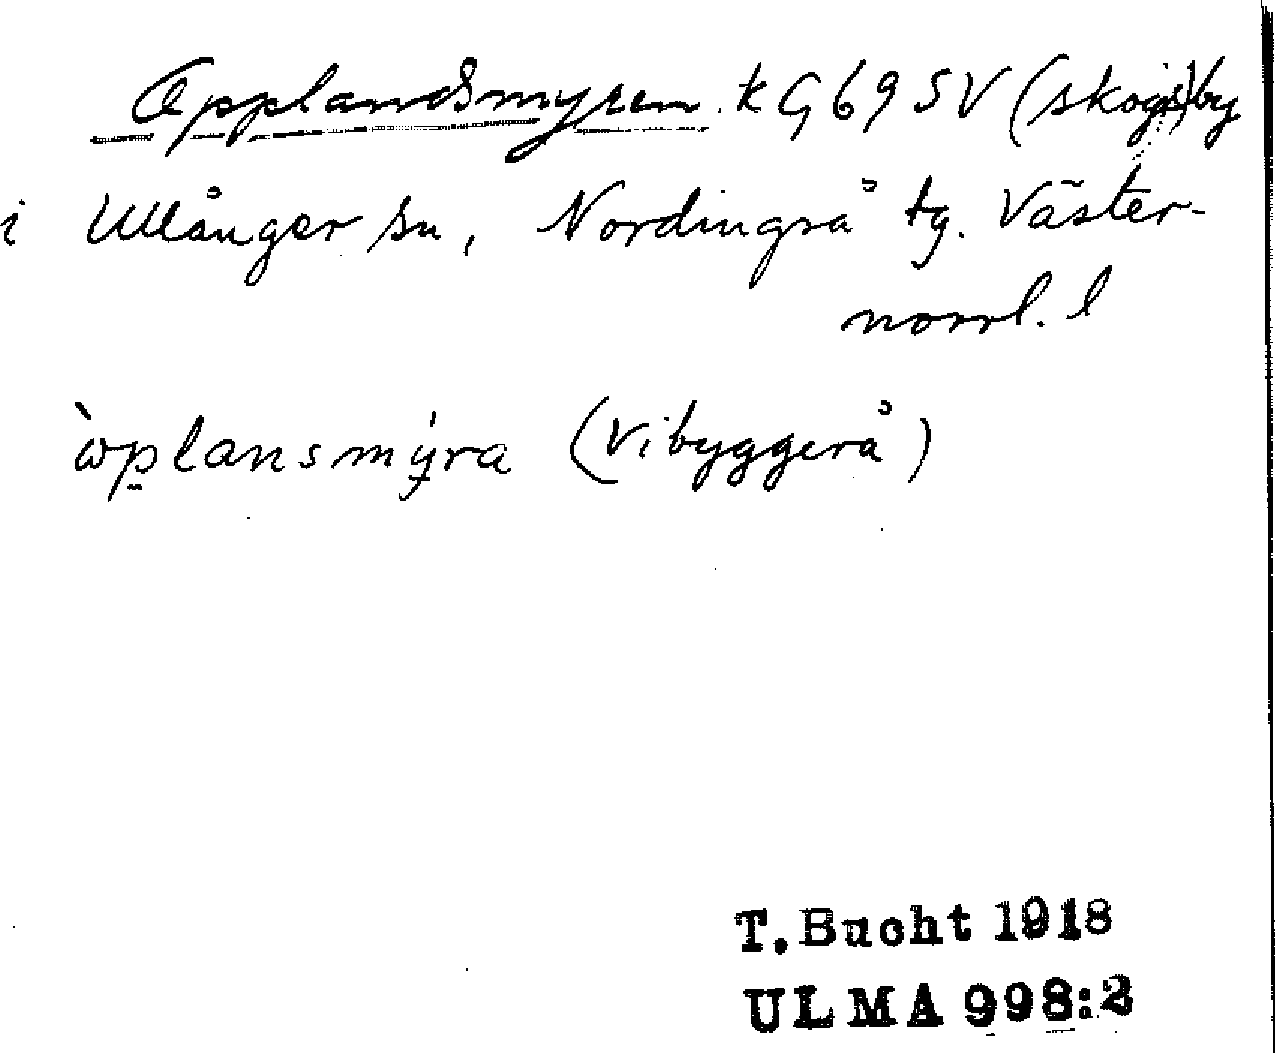 Opplandsmyren. k G 69 SV (skogs)by
i Ullånger sn, Nordingrå tg. Väster-
norrl. l
ὼplansmýra (Vibyggerå)
T. Bucht 1918
ULMA 998:2